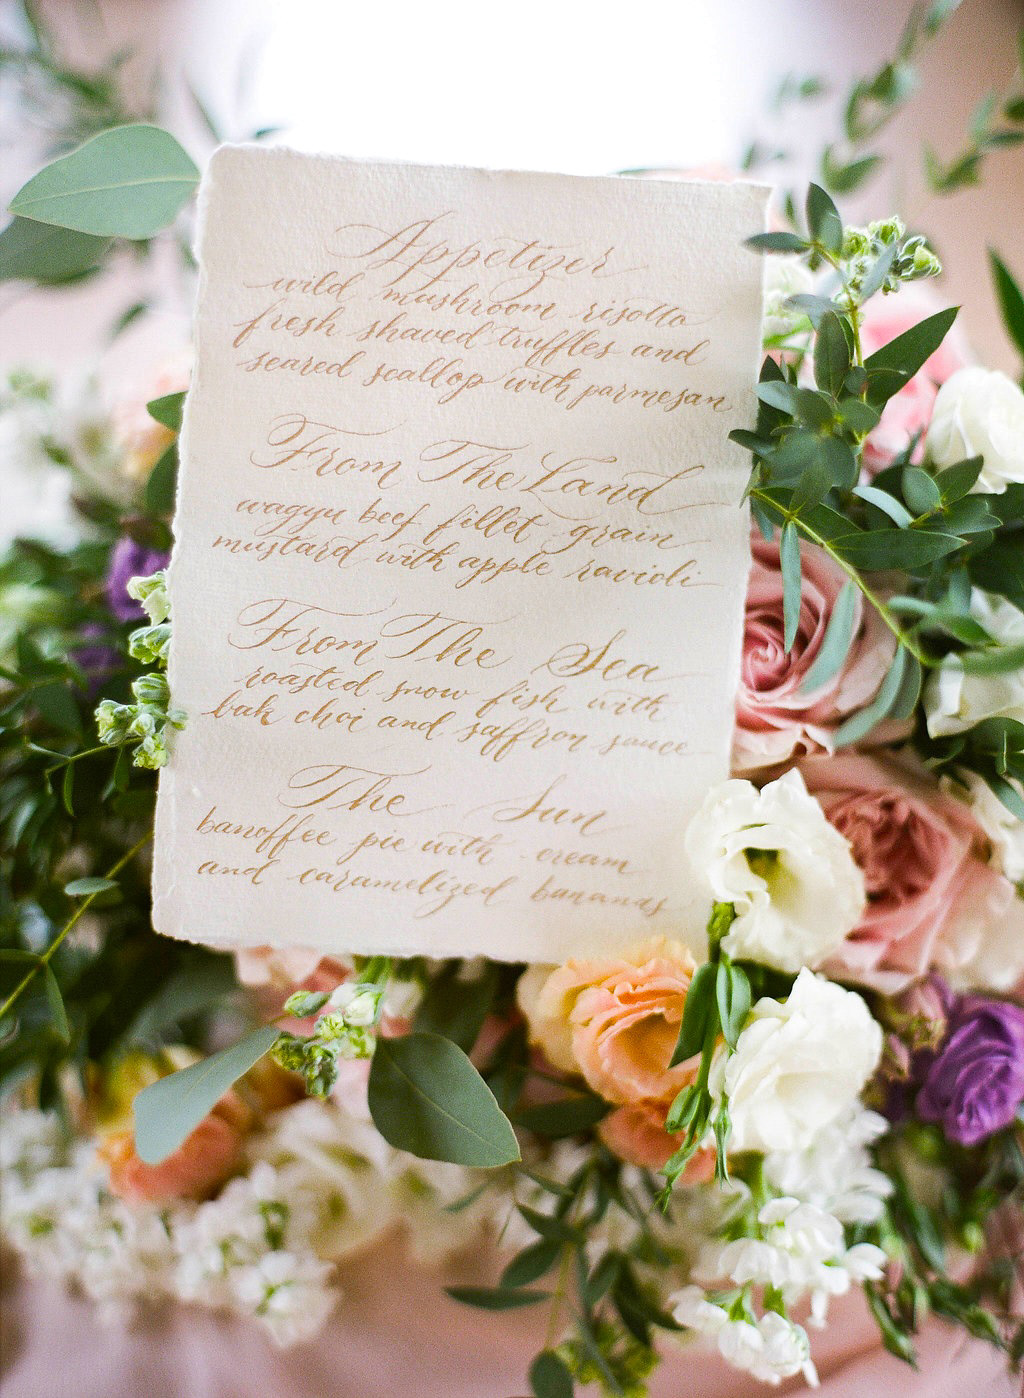 Appetizer
wild mushroom risotto
fresh shaved truffles and
seared scallop with parmesan
From The Land
wagyu beef fillet grain
mustard with apple ravioli
From The Sea
roasted snow fish with
bak choi and saffron sauce
The Sun
banoffee pie with cream
and caramelized bananas